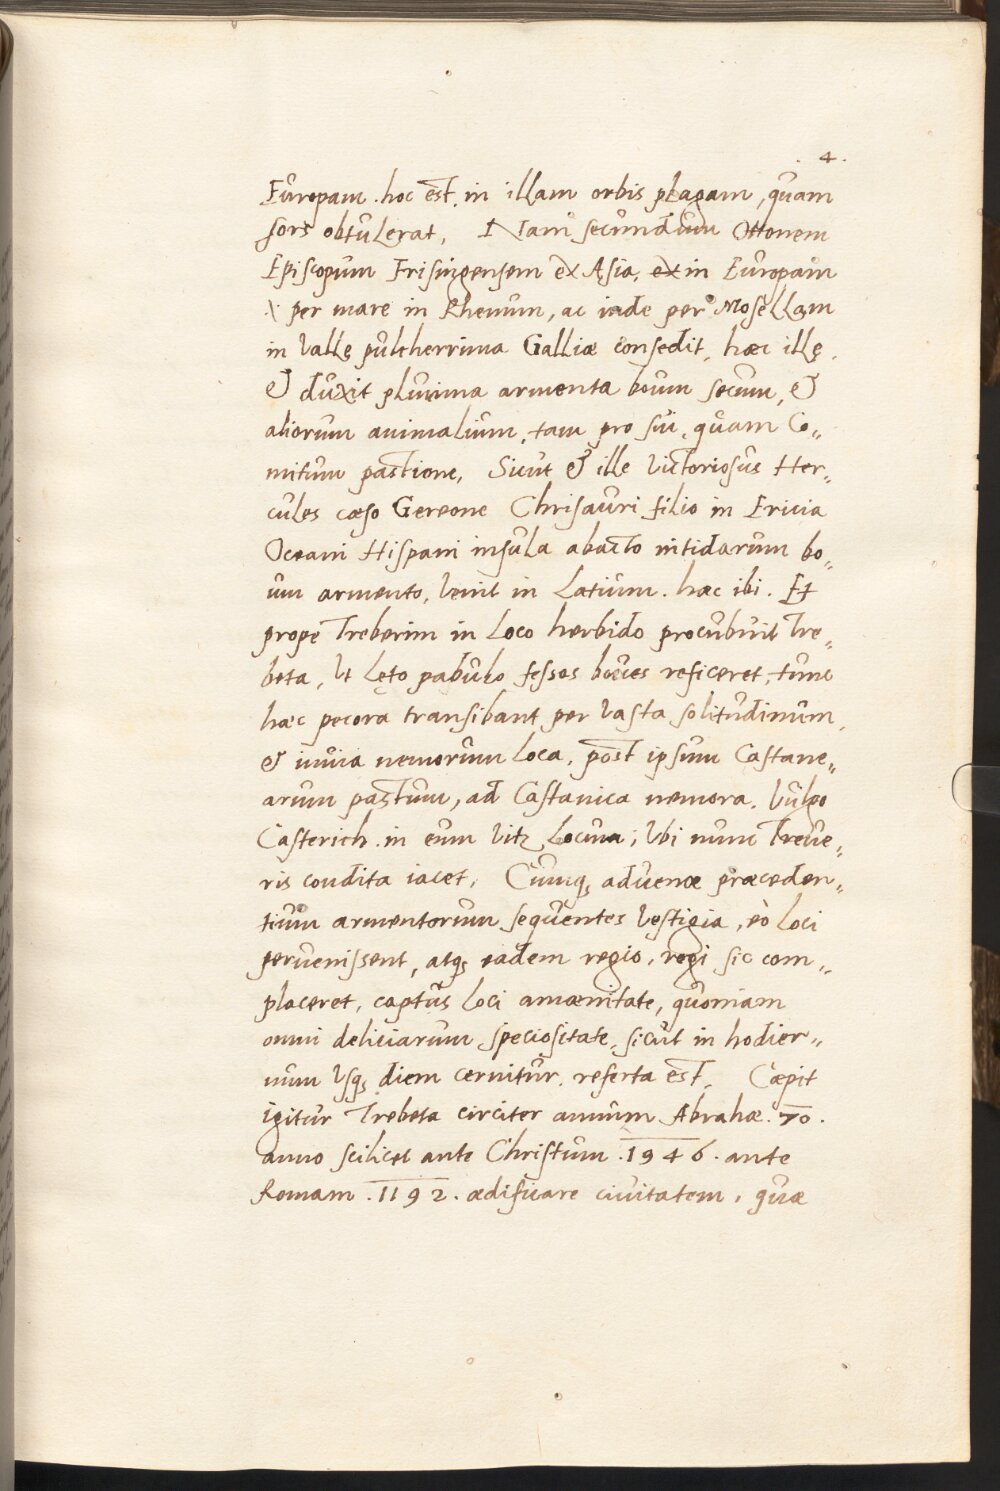 4.
Europam . hoc est . in illam orbis plagam , quam
sors obtulerat , Nam secundum Ottonem
Episcopum Frisingensem ex Asia , ex in Europam
per mare in Rhenum , ac inde per Mosellam
in valle pulcherrima Galliæ consedit , hæc ille .
& duxit plurima armenta boum secum , &
aliorum animalium , tam pro sui , quam Co„
mitum pastione , Sicut & ille victoriosus Her„
cules cæso Gereone Chrisauri filio in Ericia
Oceani Hispani insula abacto nitidarum bo„
um armento , venit in Latium . hæc ibi . Et
prope Treberim in loco herbido procubuit Tre„
beta , Vt lęto pabulo fessos boues reficeret , tunc
hæc pecora transibant per vasta solitudinum ,
& inuia nemorum loca , post ipsum Castane„
arum pastum , ad Castanica nemora . Vulgo
Casterich . in eum vitę locum , Vbi nunc Treue„
ris condita iacet , Cumq; aduenæ præceden„
tium armentorum sequentes vestigia , eò loci
peruenissent , atq; eadem regio , regi sic com„
placeret , captus loci amœnitate , quoniam
omni deliciarum speciositate , sicut in hodier„
num vsq; diem cernitur . referta est , Cæpit
igitur Trebeta circiter annum Abrahæ . 70 .
anno scilicet ante Christum . 1946 . ante
Romam . 1192 . ædificare ciuitatem , quæ